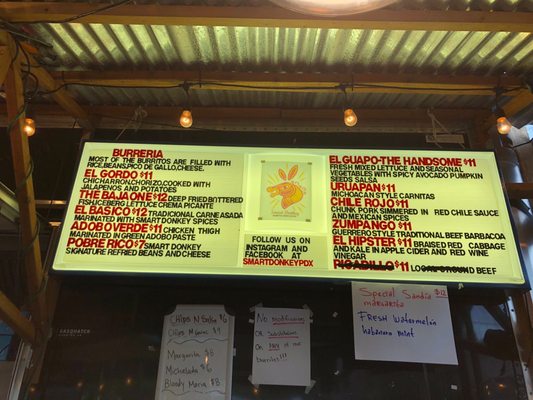 BURRERIA
MOST OF THE BURRITOS ARE FILLED WITH
RICE,BEANS,PICO DE GALLO,CHEESE.
EL GORDO $11
CHICHARRONCHORIZO,COOKED WITH
JALAPENOS AND POTATOES
THE BAJA ONE $12 DEEP FRIED BATTERED
FISH,ICEBERG LETTUCE CREMA PICANTE
EL BASICO $12 TRADITIONAL CARNE ASADA
MARINATED WITH SMART DONKEY SPICES
ADOBOVERDE $11 CHICKEN THIGH
MARINATED IN GREEN ADOBO PASTE
POBRE RICO $7 SMART DONKEY
SIGNATURE REFRIED BEANS AND CHEESE
FOLLOW US ON
INSTAGRAM AND
FACEBOOK AT
SMARTDONKEYPDX
EL GUAPO-THE HANDSOME $11
FRESH MIXED LETTUCE AND SEASONAL
VEGETABLES WITH SPICY AVOCADO PUMPKIN
SEEDS SALSA
URUAPAN $11
MICHOACAN STYLE CARNITAS
CHILE ROJO $11
CHUNK PORK SIMMERED IN RED CHILE SAUCE
AND MEXICAN SPICES
ZUMPANGO $11
GUERRERO STYLE TRADITIONAL BEEF BARBACOA
EL HIPSTER $11 BRAISED RED CABBAGE
AND KALE IN APPLE CIDER AND RED WINE
VINEGAR
PICADILLO $11 LOCAL GROUND BEEF
SASQUATCH
Chips N Salsa $6
Chips N Guac $9
Margarita $8
Michelada $6
Bloody Maria $8
No Modifications
Or Substitutions
On Any of our
burritos!!!
Special Sandia $12
margarita
Fresh Watermelon
habanero mint